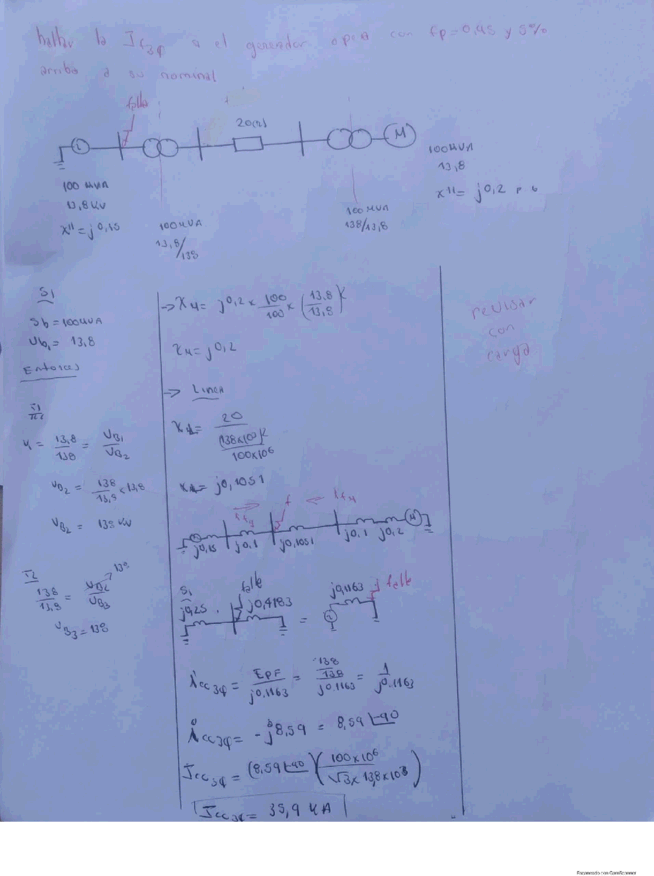 hallar la Icc3φ si el generador opera con fp=0,45 y 5%
arriba a su nominal
falla
20(Ω)
M
100 MVA
13,8 KV
X"= j0,15
100 MVA
13,8/
138
100 MVA
138/13,8
100 MVA
13,8
X"= j0,2
S1
Sb = 100 MVA
Ub1 = 13,8
Entonces
T1
13,8/138 = UB1/UB2
UB2 = 138/13,8 x 13,8
UB2 = 138 KV
T2
138/13,8 = UB2/UB3
138
UB3 = 138
→ XM = j0,2 x 100/100 x (13,8/13,8)²
XM = j0,2
→ Linea
20
(138x10³)²
100x10⁶
= j0,1051
f
M
j0,15
j0,1
j0,1051
j0,1
j0,2
S1
falla
j0,25
j0,4183
=
j0,1163
falla
icc3φ = EPF/j0,1163 = 138/138/j0,1163 = 1/j0,1163
icc3φ = -j8,59 = 8,59∠-90
Icc3φ = (8,59∠-90)(100x10⁶/√3x138x10³)
Icc3φ = 35,9 KA
revisar
con
carga